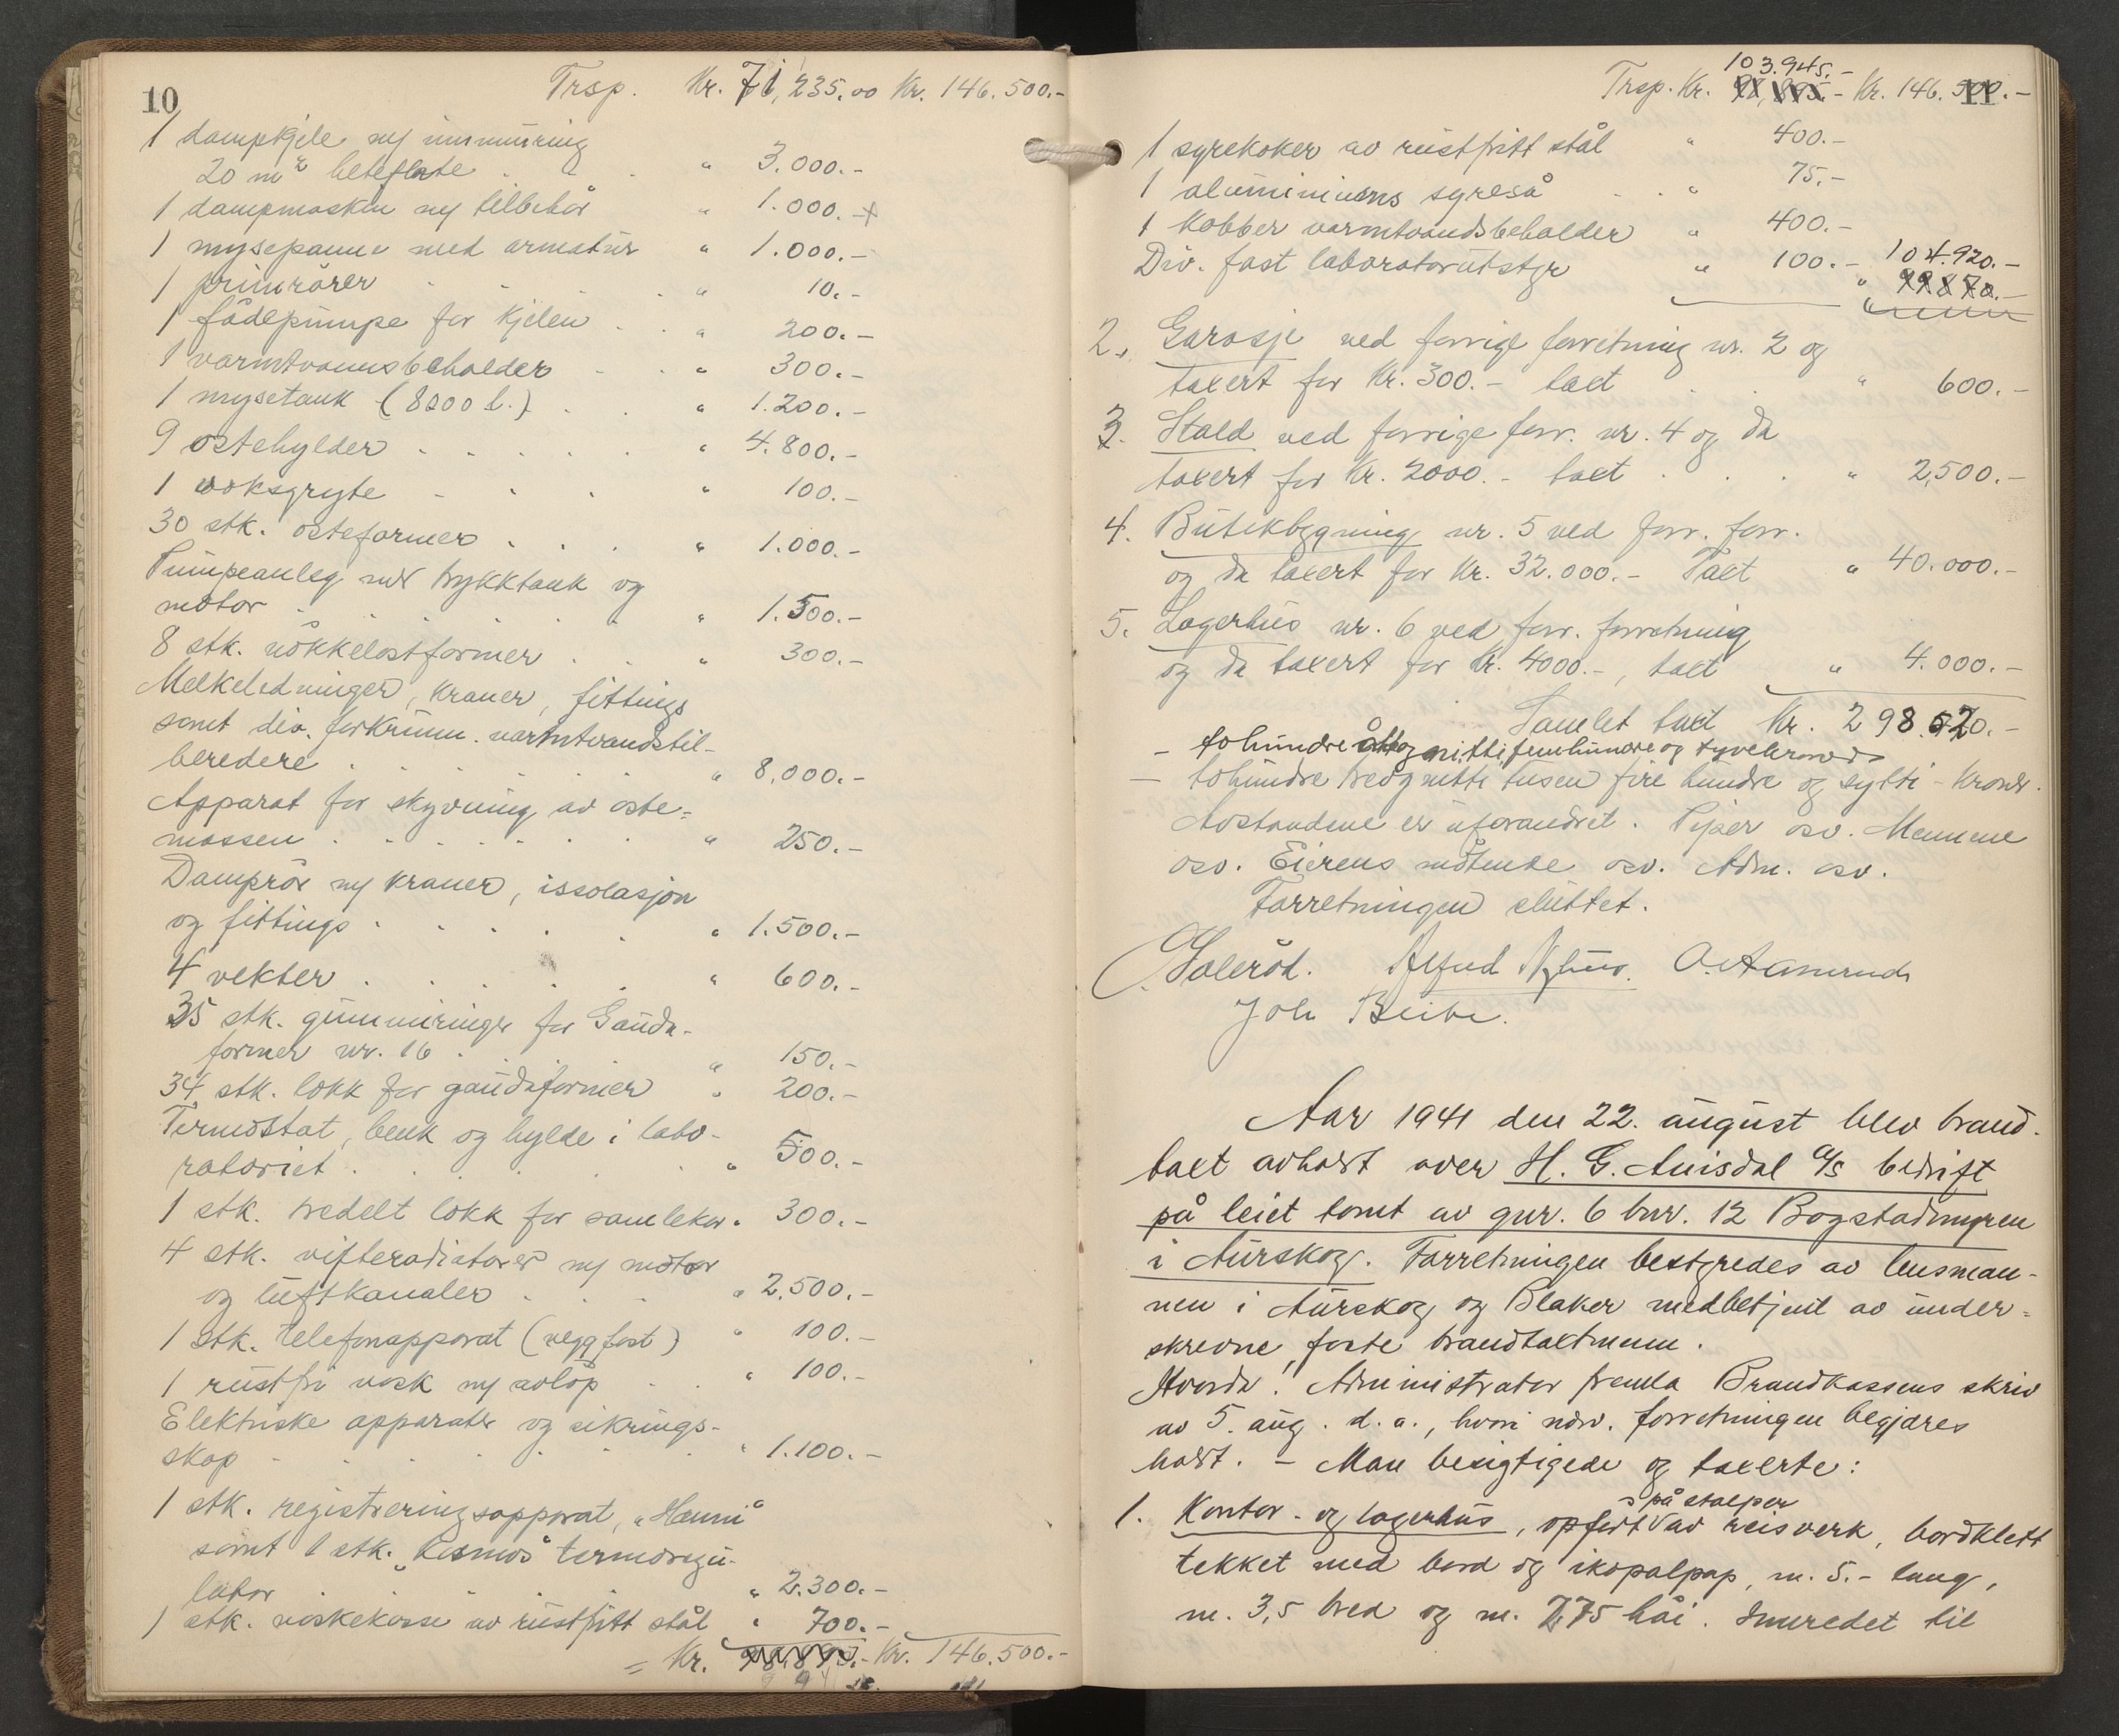 10
Trsp. Kr. 71,235.00 Kr. 146.500.-
1 dampkjele m/ inmuring
20 m² heteflate . . . " 3.000.-
1 dampmaskin m/ tilbehör " 1.000.-
1 mysepanne med armatur " 1.000.-
1 primrörer . . . " 10.-
1 födepumpe for kjelen . . " 200.-
1 varmtvannsbeholder . . " 300.-
1 mysetank (8200 l.) . " 1.200.-
9 ostehylder . . . . . " 4.800.-
1 voksgryte . . . . " 100.-
30 stk. osteformer . . . " 1.000.-
Pumpeanleg med trykktank og
motor . . . . . " 1.500.-
8 stk. nökkelostformer . . " 300.-
Melkeledninger, kraner, fittings
samt div. forkrum. varmtvandstil-
beredere . . . . . " 8,000.-
Apparat for skyvning av oste-
massen . . . . . . " 250.-
Damprör m/ kraner, issolasjon
og fittings . . . . . " 1.500.-
4 vekter . . . . . " 600.-
35 stk. gummiringer for Gauda-
former nr. 16 . . . " 150.-
34 stk. lokk for gaudaformer " 200.-
Termostat, benk og hylde i labo-
ratoriet . . . . . " 500.-
1 stk. tredelt lokk for samlekar " 300.-
4 stk. vifteradiatorer m/ motor
og luftkanaler . . . " 2,500.-
1 stk. telefonapparat (veggfast) " 100.-
1 rustfri vask m/ avlöp . . " 100.-
Elektriske apparater og sikrings-
skap . . . . . . " 1.100.-
1 stk. registreringsapparat, "Hanni"
samt 1 stk. "Kosmos" termoregu-
lator . . . . . " 2.300.-
1 stk. vaskekasse av rustfritt stål " 700.-
= Kr. 98.895.- Kr. 146.500.-
11
103.945.-
Trsp. Kr. 98,895.- Kr. 146.500.-
1 syrekoker av rustfritt stål " 400.-
1 aluminiums syreså . . " 75.-
1 kobber varmtvandsbeholder " 400.-
Div. fast laboratorutstyr " 100.- 104.920.-
" 99870.-
2. Garasje ved forrige forretning nr. 2 og
taxert for Kr. 300.- taxt . . " 600.-
3. Stald ved forrige forr. nr. 4 og da
taxert for Kr. 2000.- taxt . . . " 2,500.-
4. Butikbygning nr. 5 ved forr. forr.
og da taxert for Kr. 32.000.- Taxt " 40.000.-
5. Lagerhus nr. 6 ved forr. forretning
og da taxert for Kr. 4000.-, taxt " 4.000.-
Samlet taxt Kr. 298.520.-
- tohundre åtteog nitti femhundre og tyvekroner
- tohundre treognitti tusen fire hundre og sytti - kroner.
Avstandene er uforandret. Piper osv. Mennene
osv. Eierens mötende osv. Adm. osv.
Forretningen sluttet.
Alfred Nyhus.
Joh
Aar 1941 den 22. august blev brand-
taxt avholdt over H. G. Auisdal A/S bedrift
på leiet tomt av gnr. 6 bnr. 12 Bogstadmyren
i Aurskog. Forretningen bestyredes av lensman-
nen i Aurskog og Blaker medbetjent av under-
skrevne, faste brandtaxtmenn.
Hvorda! Administrator fremla Brandkassens skriv
av 5. aug. d. a., hvori ndv. forretningen begjæres
holdt. - Man besigtigede og taxerte:
1. Kontor- og lagerhus, opfört på stolper av reisverk, bordklett
tekket med bord og ikopalpap, m. 5.- lang,
m. 3,5 bred og m. 2,75 høi. Innredet til